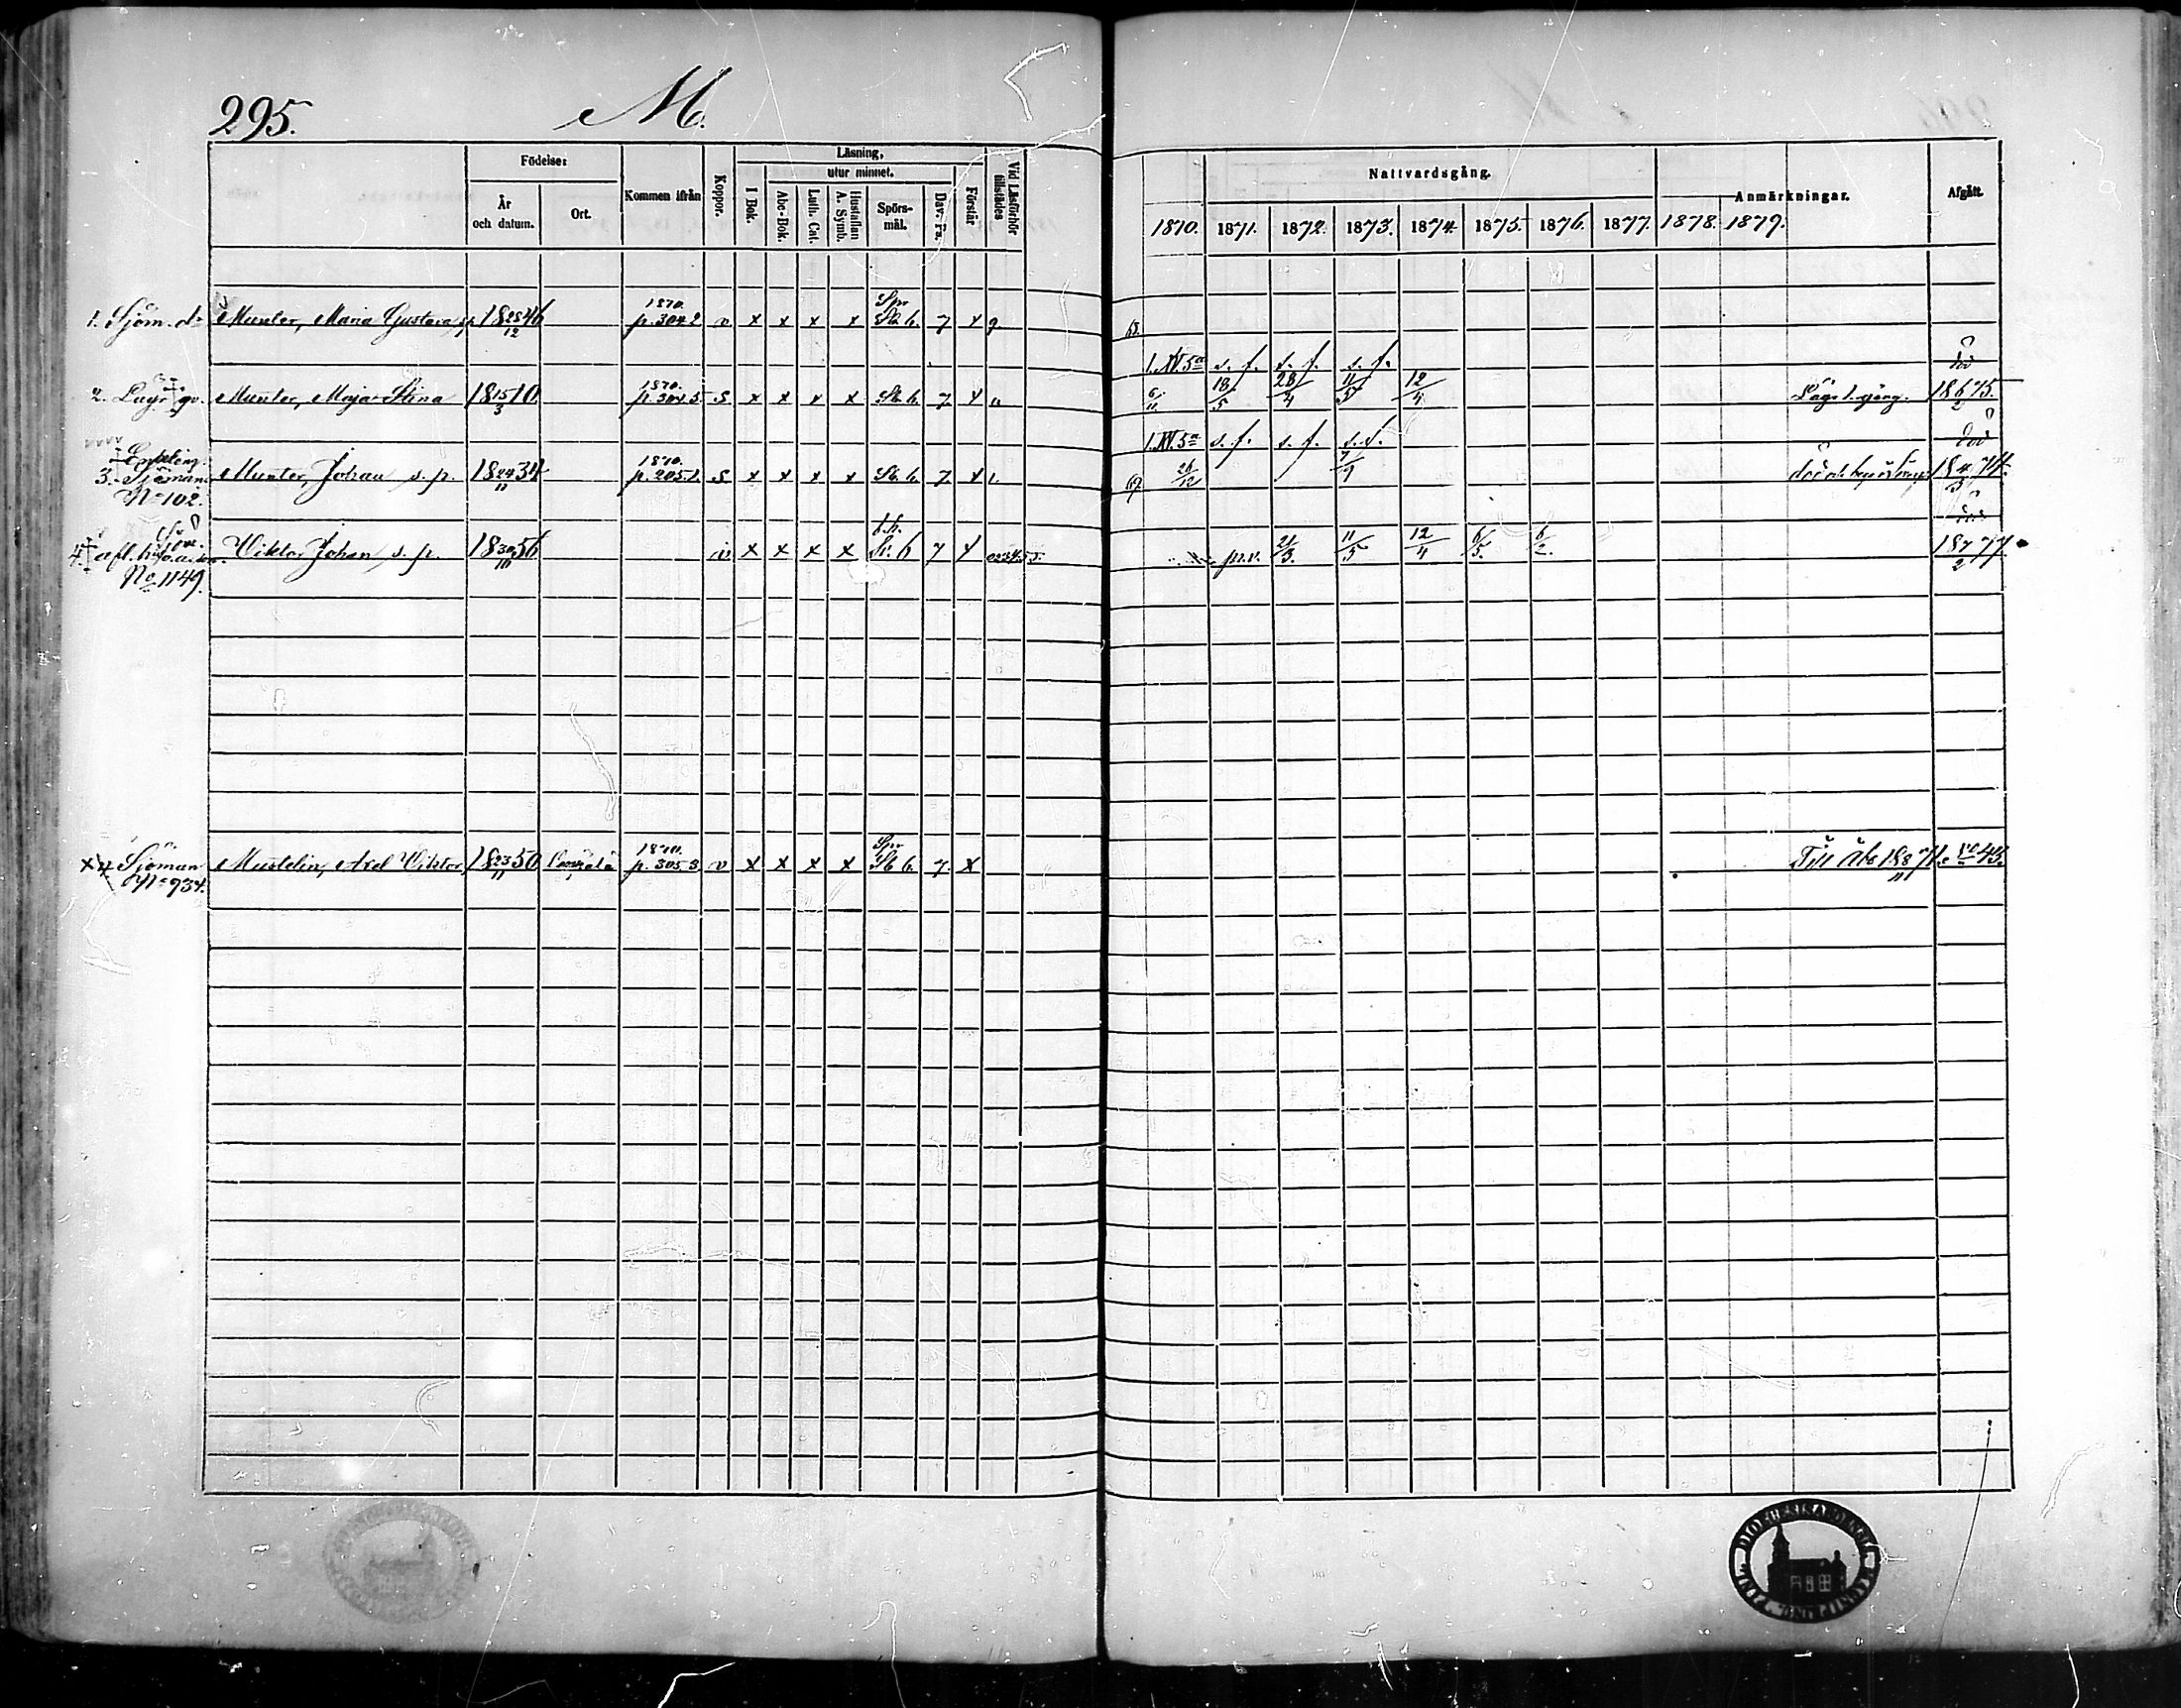 295.
M.
Födelse:
År
och datum.
Ort.
Kommen ifrån
Koppor.
Läsning,
utur minnet.
I Bok.
Abc-Bok.
Luth. Cat.
Hustaflan
A. Symb.
Spörs-
mål.
Dav. Ps.
Förstår
Vid Läsförhör
tillstädes
Nattvardsgång.
1870. 1871. 1872. 1873. 1874. 1875. 1876. 1877. 1878. 1879.
Anmärkningar.
Afgått.
1. Sjöm. d:r Munter, Maria Gustava, s.p. 18 28/12 46
1870.
p. 304.2 v x x x x
Spr
St. 6. 7 x 9.
1. XV. 5 s. f. s. f. s. f.
död
2. Munter, Maja Stina 18 15/3 10
1870.
p. 304.5 s x x x x St. 6. 7 x
6/11 18/5 28/4 11/5 12/4
18 6/2 75.
1. XV. 5 s. f. s. f. s. f.
död
3. Sjöman
No 102.
Munter, Johan s. p. 18 24/11 34
1870.
p. 205.1. s x x x x St. 6. 7 x 1.
26/12 7/9
18 4/3 74.
4.
No 1149.
Viktor Johan s. p. 18 30/10 56
v x x x x 6 7 x
p.v. 21/3. 11/5 12/4 6/5. 6/2.
18 7/2 77.
x 4. Sjöman
No 934.
Mustelin, Axel Viktor 18 23/11 50
1870.
p. 305.3 v x x x x
Spr
St. 6. 7. x
Till Åbo 18 8/11 71. No 43.